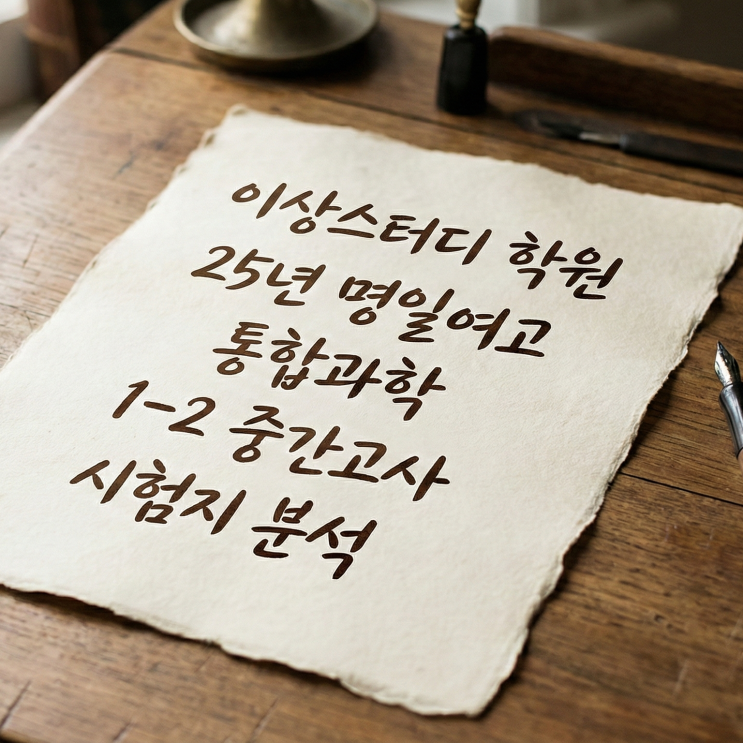 이상스터디 학원
25년 명일여고
통합과학
1-2 중간고사
시험지 분석